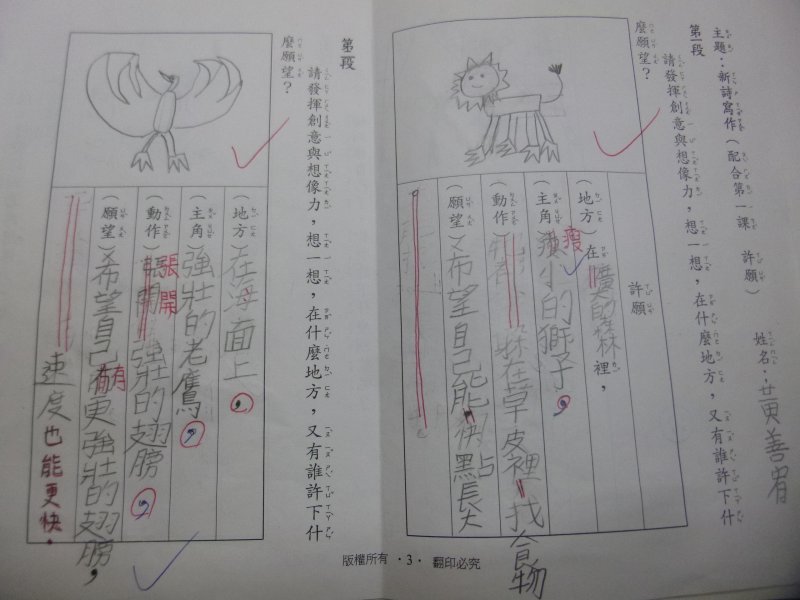 主題：新詩寫作(配合第一課　許願)
姓名：黃善宥
第一段
請發揮創意與想像力，想一想，在什麼地方，又有誰許下什
麼願望？
許願
(地方)在廣大的森林裡，
(主角)瘦小的獅子，
(動作)躲在草皮裡找食物
(願望)希望自己能快點長大
第二段
請發揮創意與想像力，想一想，在什麼地方，又有誰許下什
麼願望？
(地方)在海面上，
(主角)強壯的老鷹，
(動作)張開強壯的翅膀，
(願望)希望自己有更強壯的翅膀，
速度也能更快。
版權所有 ·3· 翻印必究